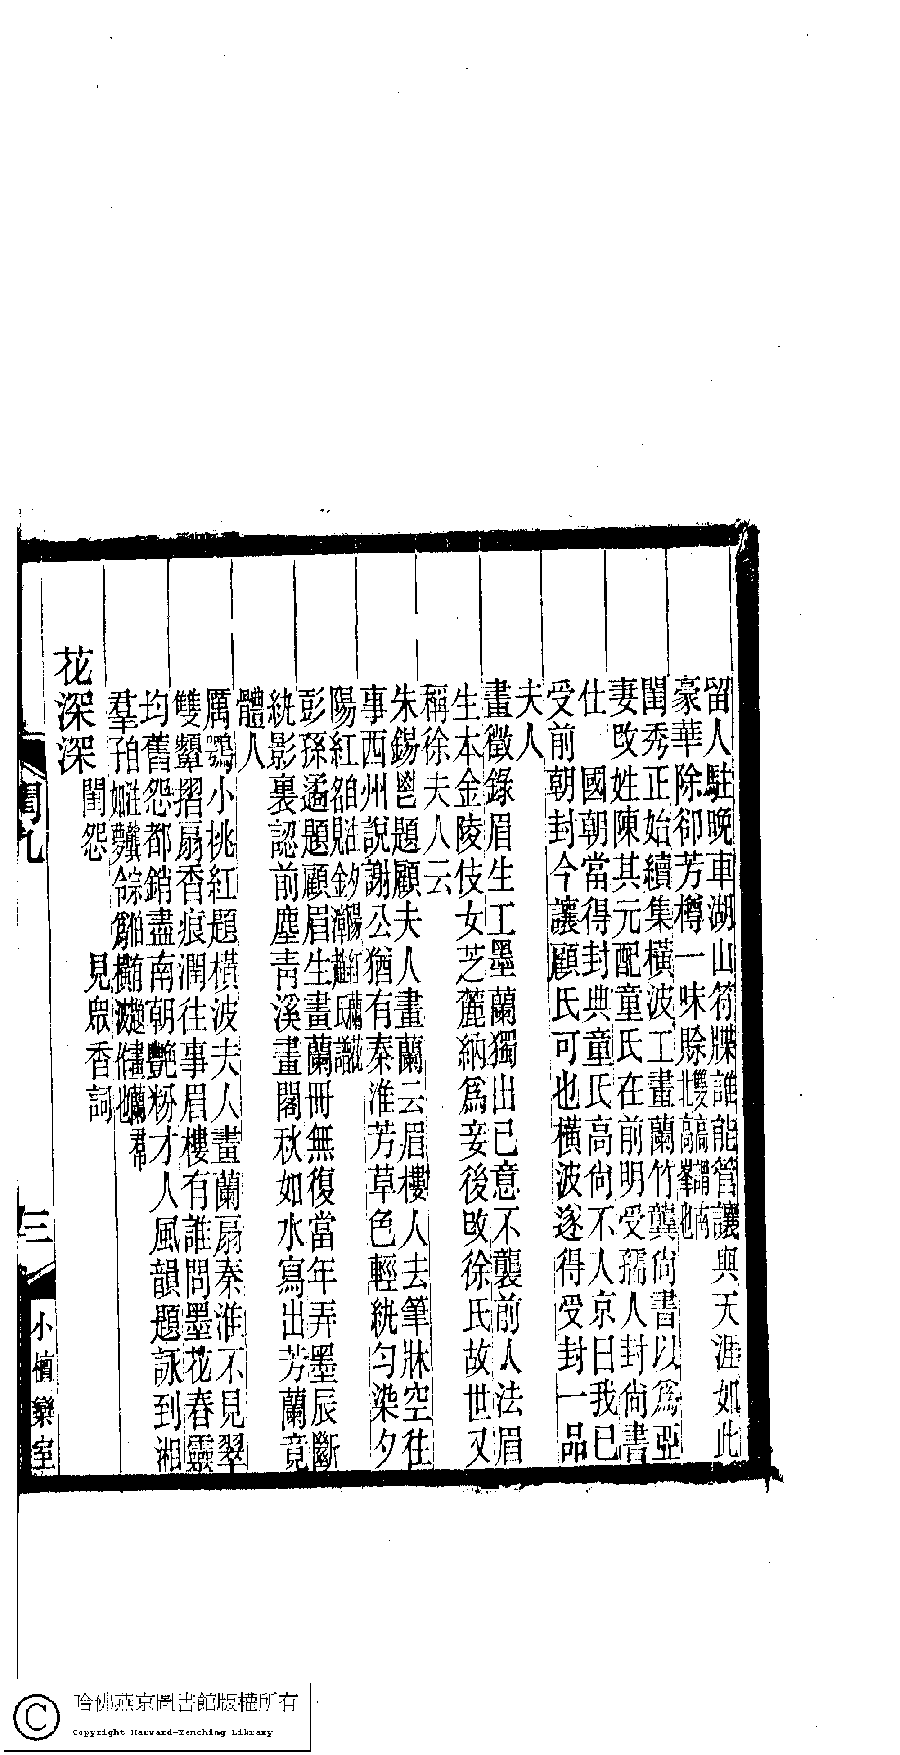 留人駐晚車湖山符牒誰能管讓與天涯如此
豪華除卻芳樽一味賒雙高謂南北高峯也
閨秀正始續集橫波工畫蘭竹龔尙書以爲亞
妻攺姓陳其元配童氏在前明受孺人封尙書
仕 國朝當得封典童氏高尙不人京曰我已
受前朝封今讓顧氏可也橫波遂得受封一品
夫人
畫徵錄眉生工墨蘭獨出己意不襲前人法眉
生本金陵伎女芝麓納爲妾後攺徐氏故世又
稱徐夫人云
朱錫鬯題顧夫人畫蘭云眉樓人去筆牀空往
事西州說謝公猶有秦淮芳草色輕紈勻染夕
陽紅
彭孫遹題顧眉生畫蘭冊無復當年弄墨辰斷
紈影裏認前塵靑溪畫閣秋如水寫出芳蘭竟
體人
厲鶚小桃紅題橫波夫人畫蘭扇秦淮不見翠
雙顰摺扇香痕潤往事眉樓有誰問墨花春靈
均舊怨都銷盡南朝艷粉才人風韻題詠到湘
羣
花深深 閨怨 見眾香詞
閨九 三 小檀欒室
哈佛燕京圖書館版權所有
Copyright Harvard-Yenching Library